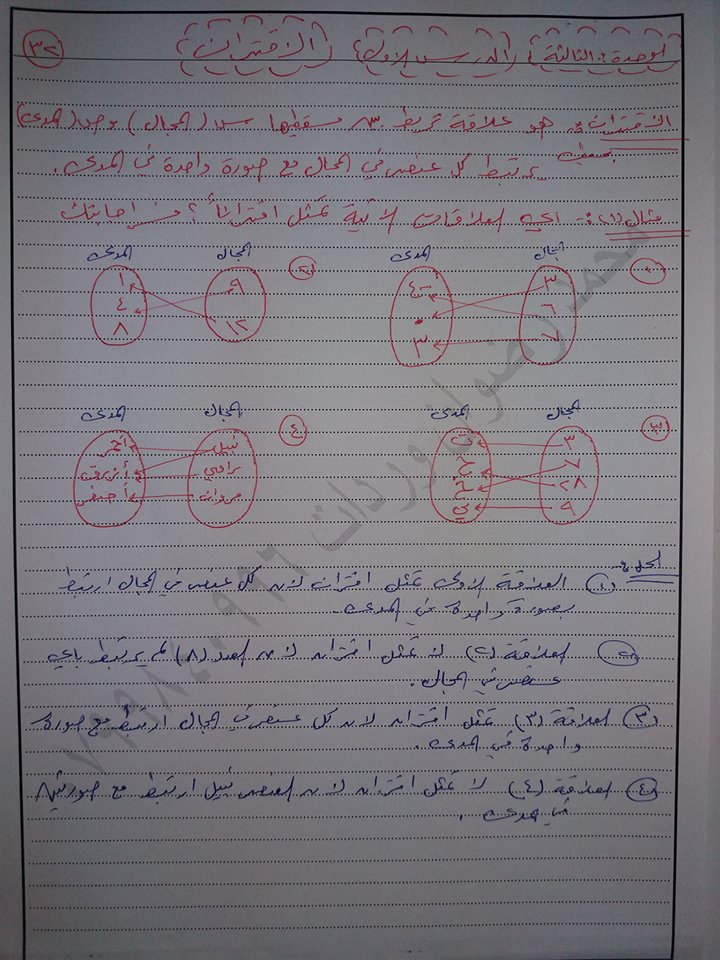 الوحدة الثالثة (الدرس الأول) (الاقتران) ٣٢
الاقتران: هو علاقة تربط بين مسقطيها من (المجال) وحن (المدى)
بحيث يرتبط كل عنصر في المجال مع صورة واحدة في المدى.
مثال (١): أي العلاقات الآتية تمثل اقتراناً؟ فسر إجابتك
١ المجال المدى
٣ ٦ ٧
٤- ٠ ٣
٢ المجال المدى
٩ ١٢
١ ٤ ٨
٣ المجال المدى
٣ ٧ ٢٨ ٩
ت ج خ ي
٤ المجال المدى
نبيل رامي مروان
أحمر أزرق أخضر
الحل:
١ العلاقة الأولى تمثل اقتران لأن كل عنصر في المجال ارتبط
بصورة واحدة في المدى.
٢ العلاقة (٢) لا تمثل اقتران لأن العدد (٨) لم يرتبط بأي
عنصر في المجال.
٣ العلاقة (٣) تمثل اقتران لأن كل عنصر في المجال ارتبط مع صورة
واحدة في المدى.
٤ العلاقة (٤) لا تمثل اقتران لأن العنصر نبيل ارتبط مع صورتين
في المدى.
محمد رضوان وردات